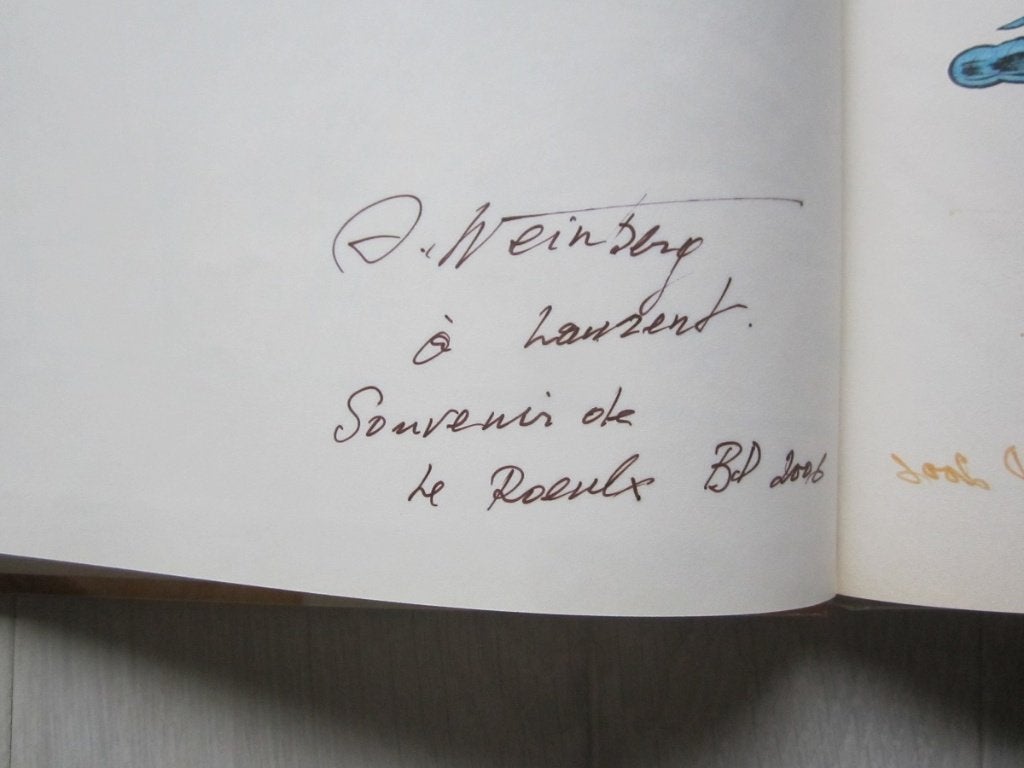 A. Weinberg
à Laurent.
Souvenir de
Le Roeulx BD 2006